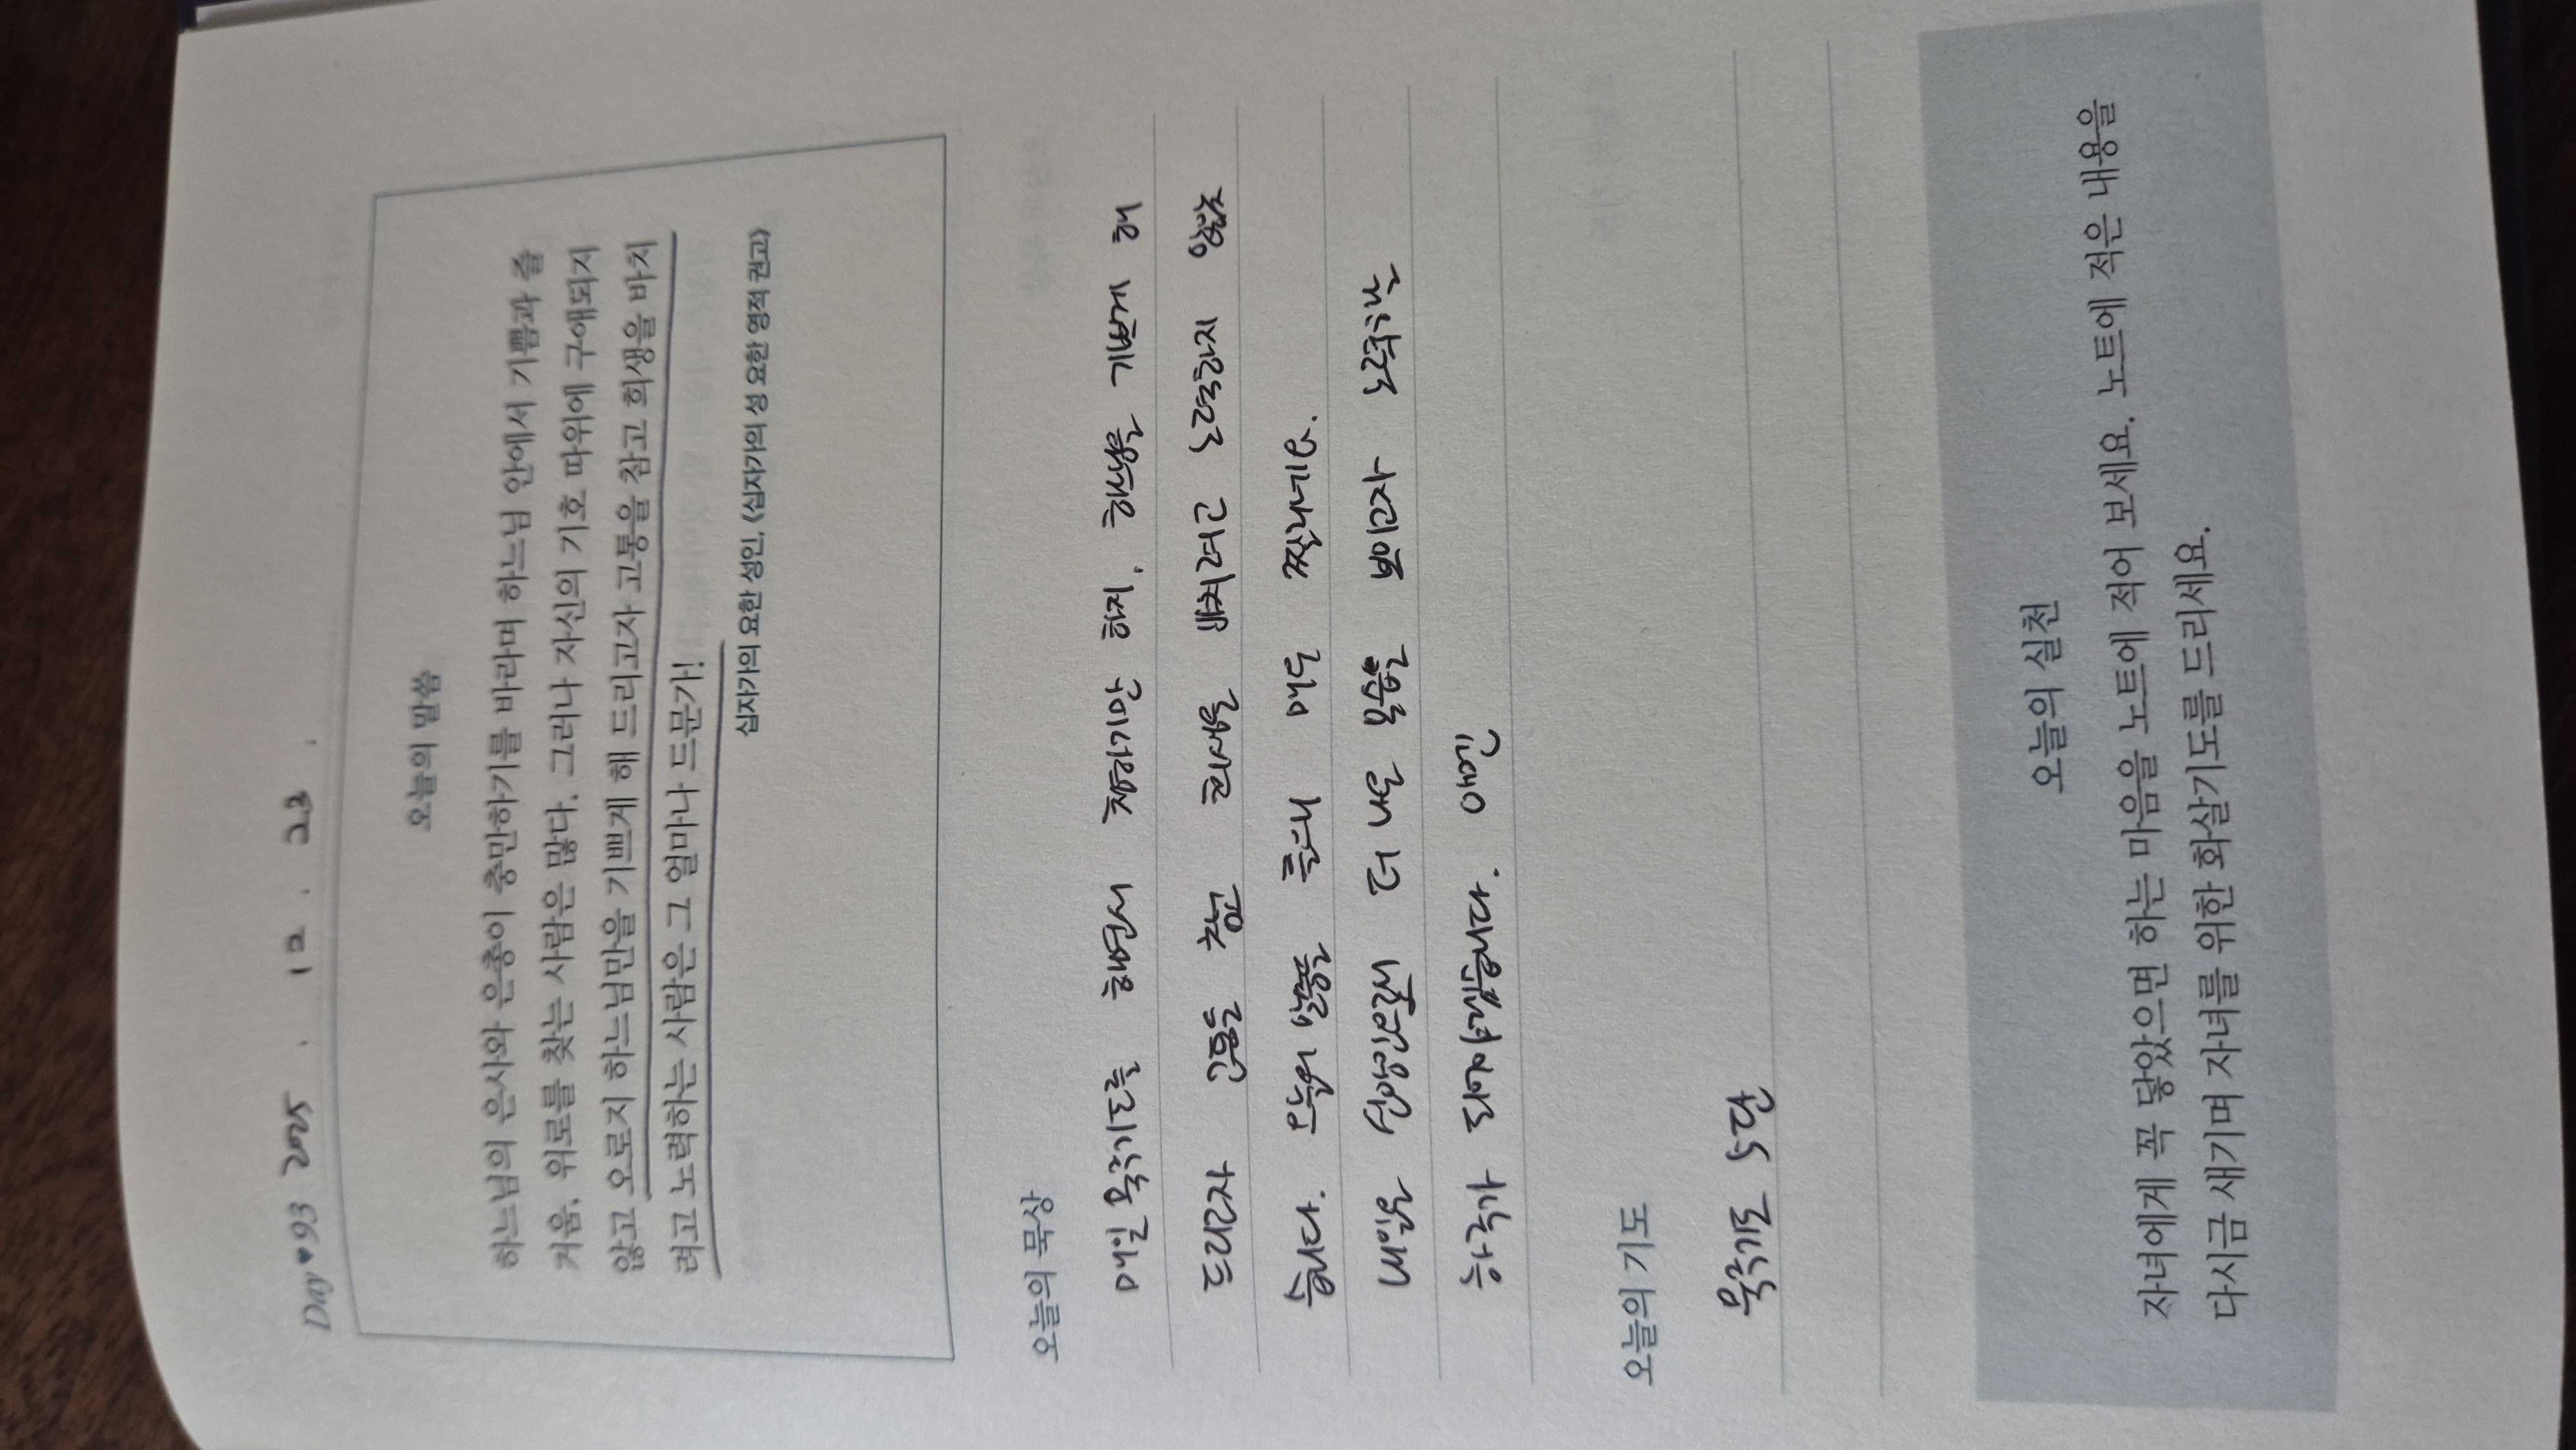 Day ♥ 93 2025 . 12 . 23 .
오늘의 말씀
하느님의 은사와 은총이 충만하기를 바라며 하느님 안에서 기쁨과 즐
거움, 위로를 찾는 사람은 많다. 그러나 자신의 기호 따위에 구애되지
않고 오로지 하느님만을 기쁘게 해 드리고자 고통을 참고 희생을 바치
려고 노력하는 사람은 그 얼마나 드문가!
십자가의 요한 성인, 《십자가의 성 요한 영적 권고》
오늘의 묵상
매일 묵주기도를 하면서 청하기만 했지, 하느님을 기쁘게 해
드리고자 고통을 참고 희생을 바치려고 노력하지 않았
습니다. 오늘의 말씀을 큰 매도 맞네요.
내일은 신앙인으로서 더 나은 모습을 보이고자 노력하는
하루가 되어야겠습니다. 아멘
오늘의 기도
묵주기도 5단
오늘의 실천
자녀에게 꼭 닿았으면 하는 마음을 노트에 적어 보세요. 노트에 적은 내용을
다시금 새기며 자녀를 위한 화살기도를 드리세요.